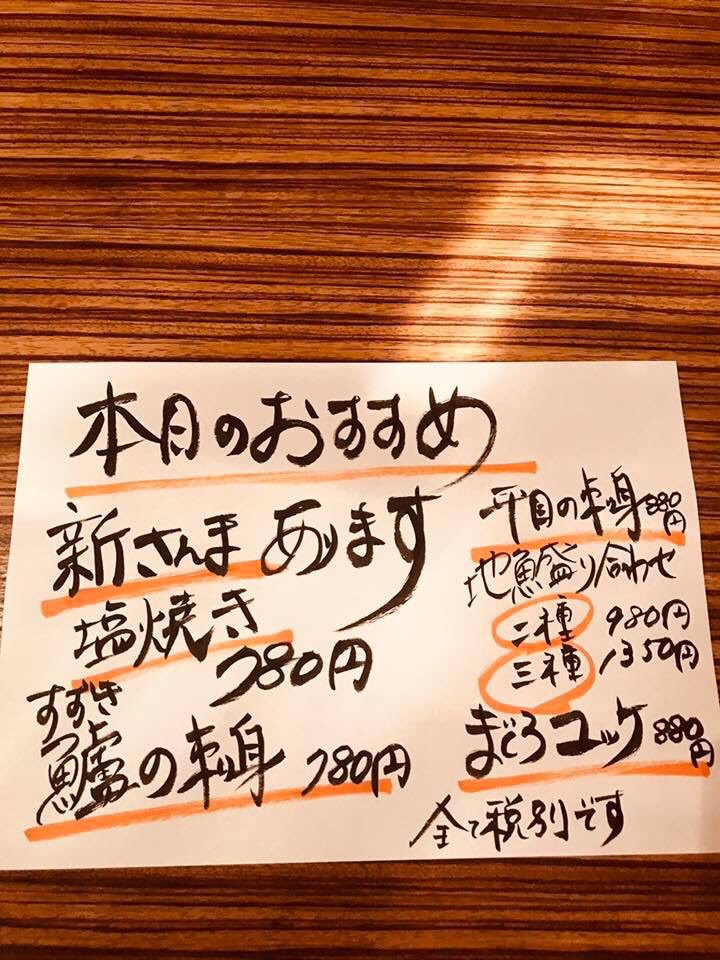 本日のおすすめ
新さんま あります
塩焼き
780円
すずき
鱸の刺身 780円
平目の刺身 880円
地魚盛り合わせ
二種 980円
三種 1350円
まぐろユッケ 880円
全て税別です